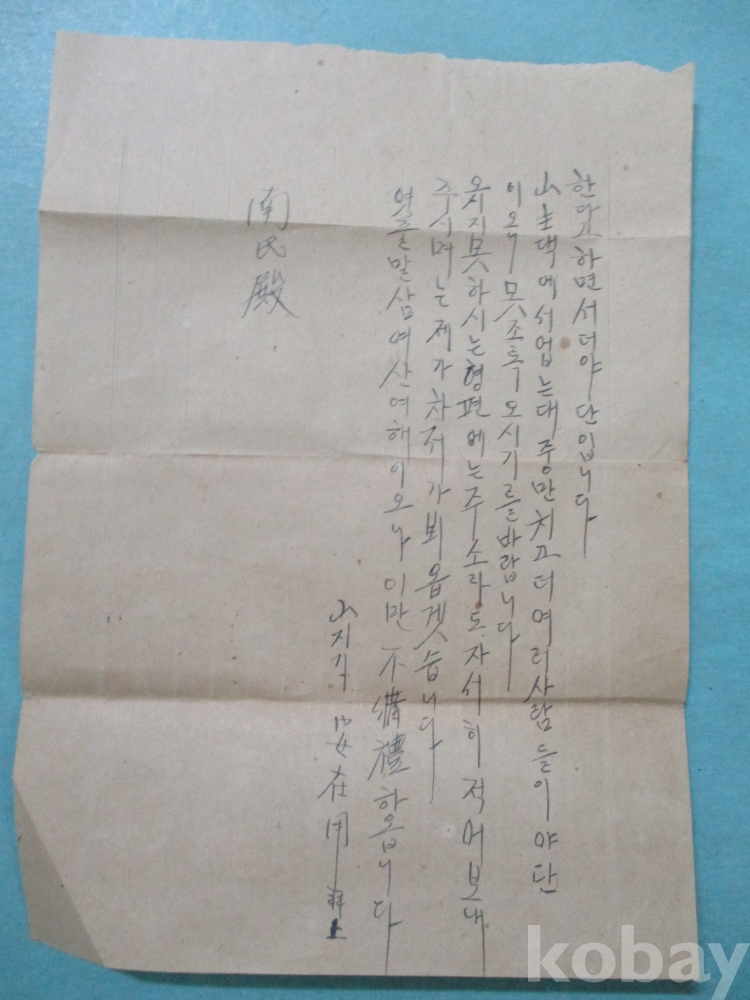 한다고하면서더야단입니다
山主댁에서업는대중만치고더여러사람들이야단
이오니 못조록 오시기를바랍니다
오지못하시는형편에는주소라도자서히적어보내
주시며는제가차저가뵈옵겟습니다
엿줄말삼여산여해이오나 이만 不備禮하옵니다
山지기 安在用 拜上
南氏殿
kobay